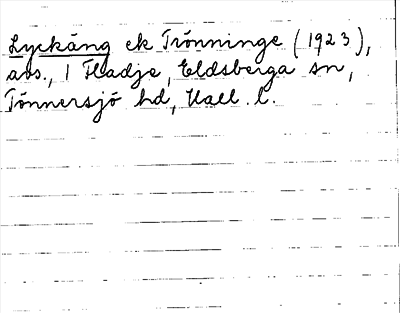 Lyckäng ek Trönninge (1923),
avs., 1 Fladje, Eldsberga sn,
Tönnersjö hd, Hall. l.